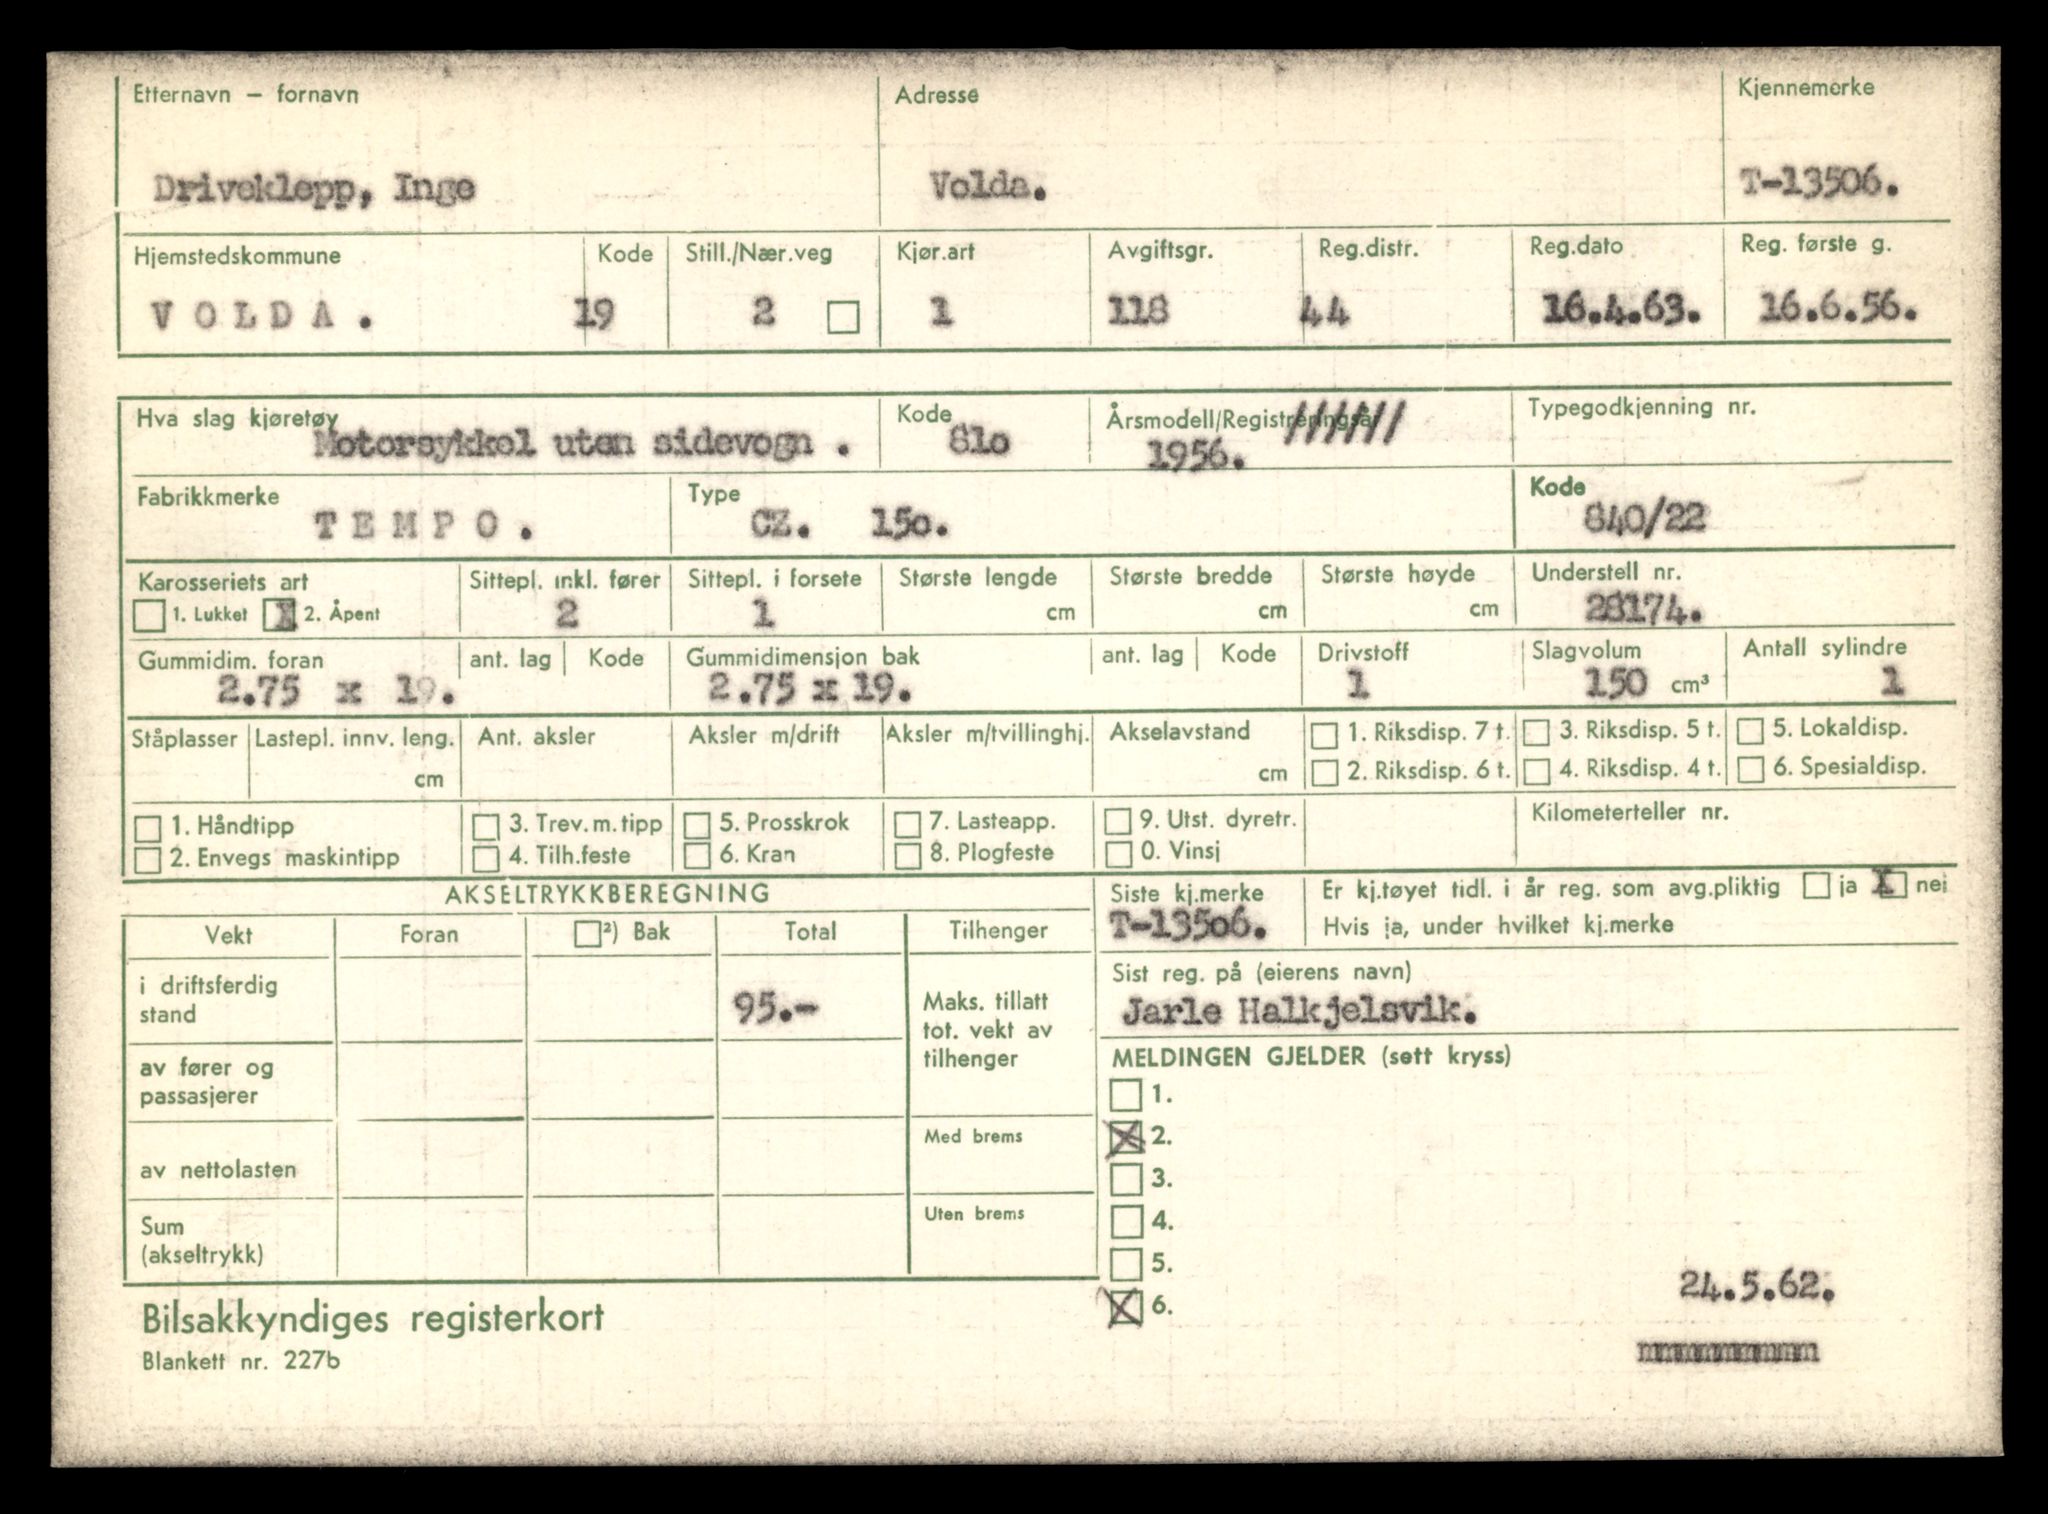 Etternavn – fornavn Adresse Kjennemerke
Driveklepp, Inge Volda. T-13506.
Hjemstedskommune Kode Still./Nær.veg Kjør.art Avgiftsgr. Reg.distr. Reg.dato Reg. første g.
VOLDA. 19 2 1 118 44 16.4.63. 16.6.56.
Hva slag kjøretøy Kode Årsmodell/Registreringsår Typegodkjenning nr.
Motorsykkel uten sidevogn . 81o 1956. //////
Fabrikkmerke Type Kode
TEMPO. CZ. 15o. 840/22
Karosseriets art Sittepl. inkl. fører Sittepl. i forsete Største lengde Største bredde Største høyde Understell nr.
1. Lukket X 2. Åpent 2 1 cm cm cm 28174.
Gummidim. foran ant. lag Kode Gummidimensjon bak ant. lag Kode Drivstoff Slagvolum Antall sylindre
2.75 x 19. 2.75 x 19. 1 150 cm³ 1
Ståplasser Lastepl. innv. leng. Ant. aksler Aksler m/drift Aksler m/tvillinghj. Akselavstand 1. Riksdisp. 7 t. 3. Riksdisp. 5 t. 5. Lokaldisp.
cm cm 2. Riksdisp. 6 t. 4. Riksdisp. 4 t. 6. Spesialdisp.
1. Håndtipp 3. Trev. m. tipp 5. Prosskrok 7. Lasteapp. 9. Utst. dyretr. Kilometerteller nr.
2. Envegs maskintipp 4. Tilh.feste 6. Kran 8. Plogfeste 0. Vinsj
AKSELTRYKKBEREGNING Siste kj.merke Er kj.tøyet tidl. i år reg. som avg.pliktig ja X nei
T-13506. Hvis ja, under hvilket kj.merke
Vekt Foran ²) Bak Total Tilhenger
Sist reg. på (eierens navn)
i driftsferdig
stand 95.- Maks. tillatt
tot. vekt av
tilhenger
Jarle Halkjelsvik.
av fører og
passasjerer
MELDINGEN GJELDER (sett kryss)
1.
Med brems X 2.
av nettolasten 3.
Uten brems 4.
Sum
(akseltrykk) 5.
24.5.62.
Bilsakkyndiges registerkort X 6.
Blankett nr. 227b